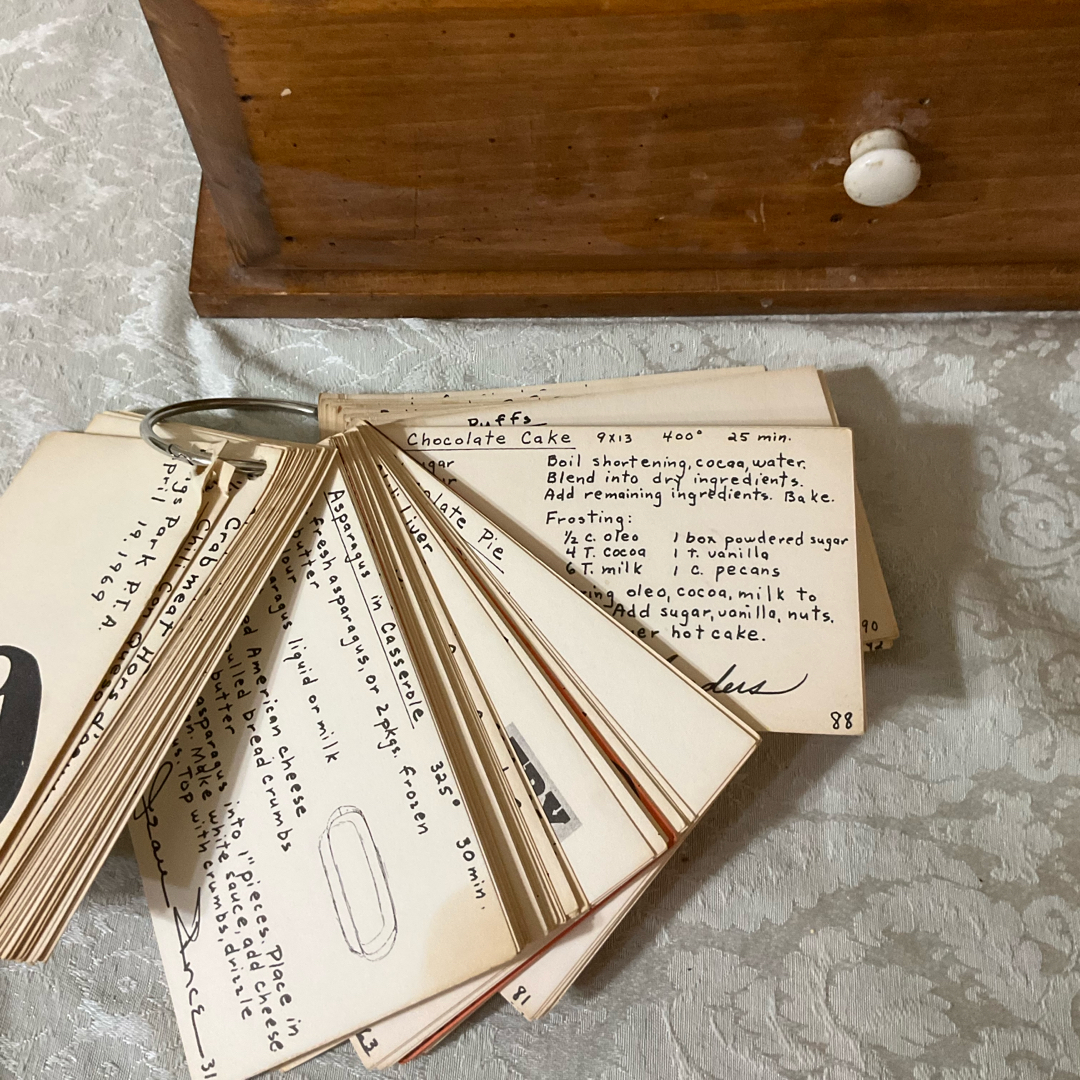 Puffs
Chocolate Cake 9x13 400° 25 min.
Boil shortening, cocoa, water.
Blend into dry ingredients.
Add remaining ingredients. Bake.
Frosting:
½ c. oleo 1 box powdered sugar
4 T. cocoa 1 t. vanilla
6 T. milk 1 c. pecans
oleo, cocoa, milk to
Add sugar, vanilla, nuts.
hot cake.
88
90
Pie
Liver
81
Asparagus in Casserole 325° 30 min.
Fresh asparagus, or 2 pkgs. frozen
butter
liquid or milk
American cheese
bread crumbs
butter
asparagus into 1" pieces. Place in
Make white sauce, add cheese
Top with crumbs, drizzle
31
Crabmeat Hors
Chili Con Queso
Park P.T.A.
19, 1969